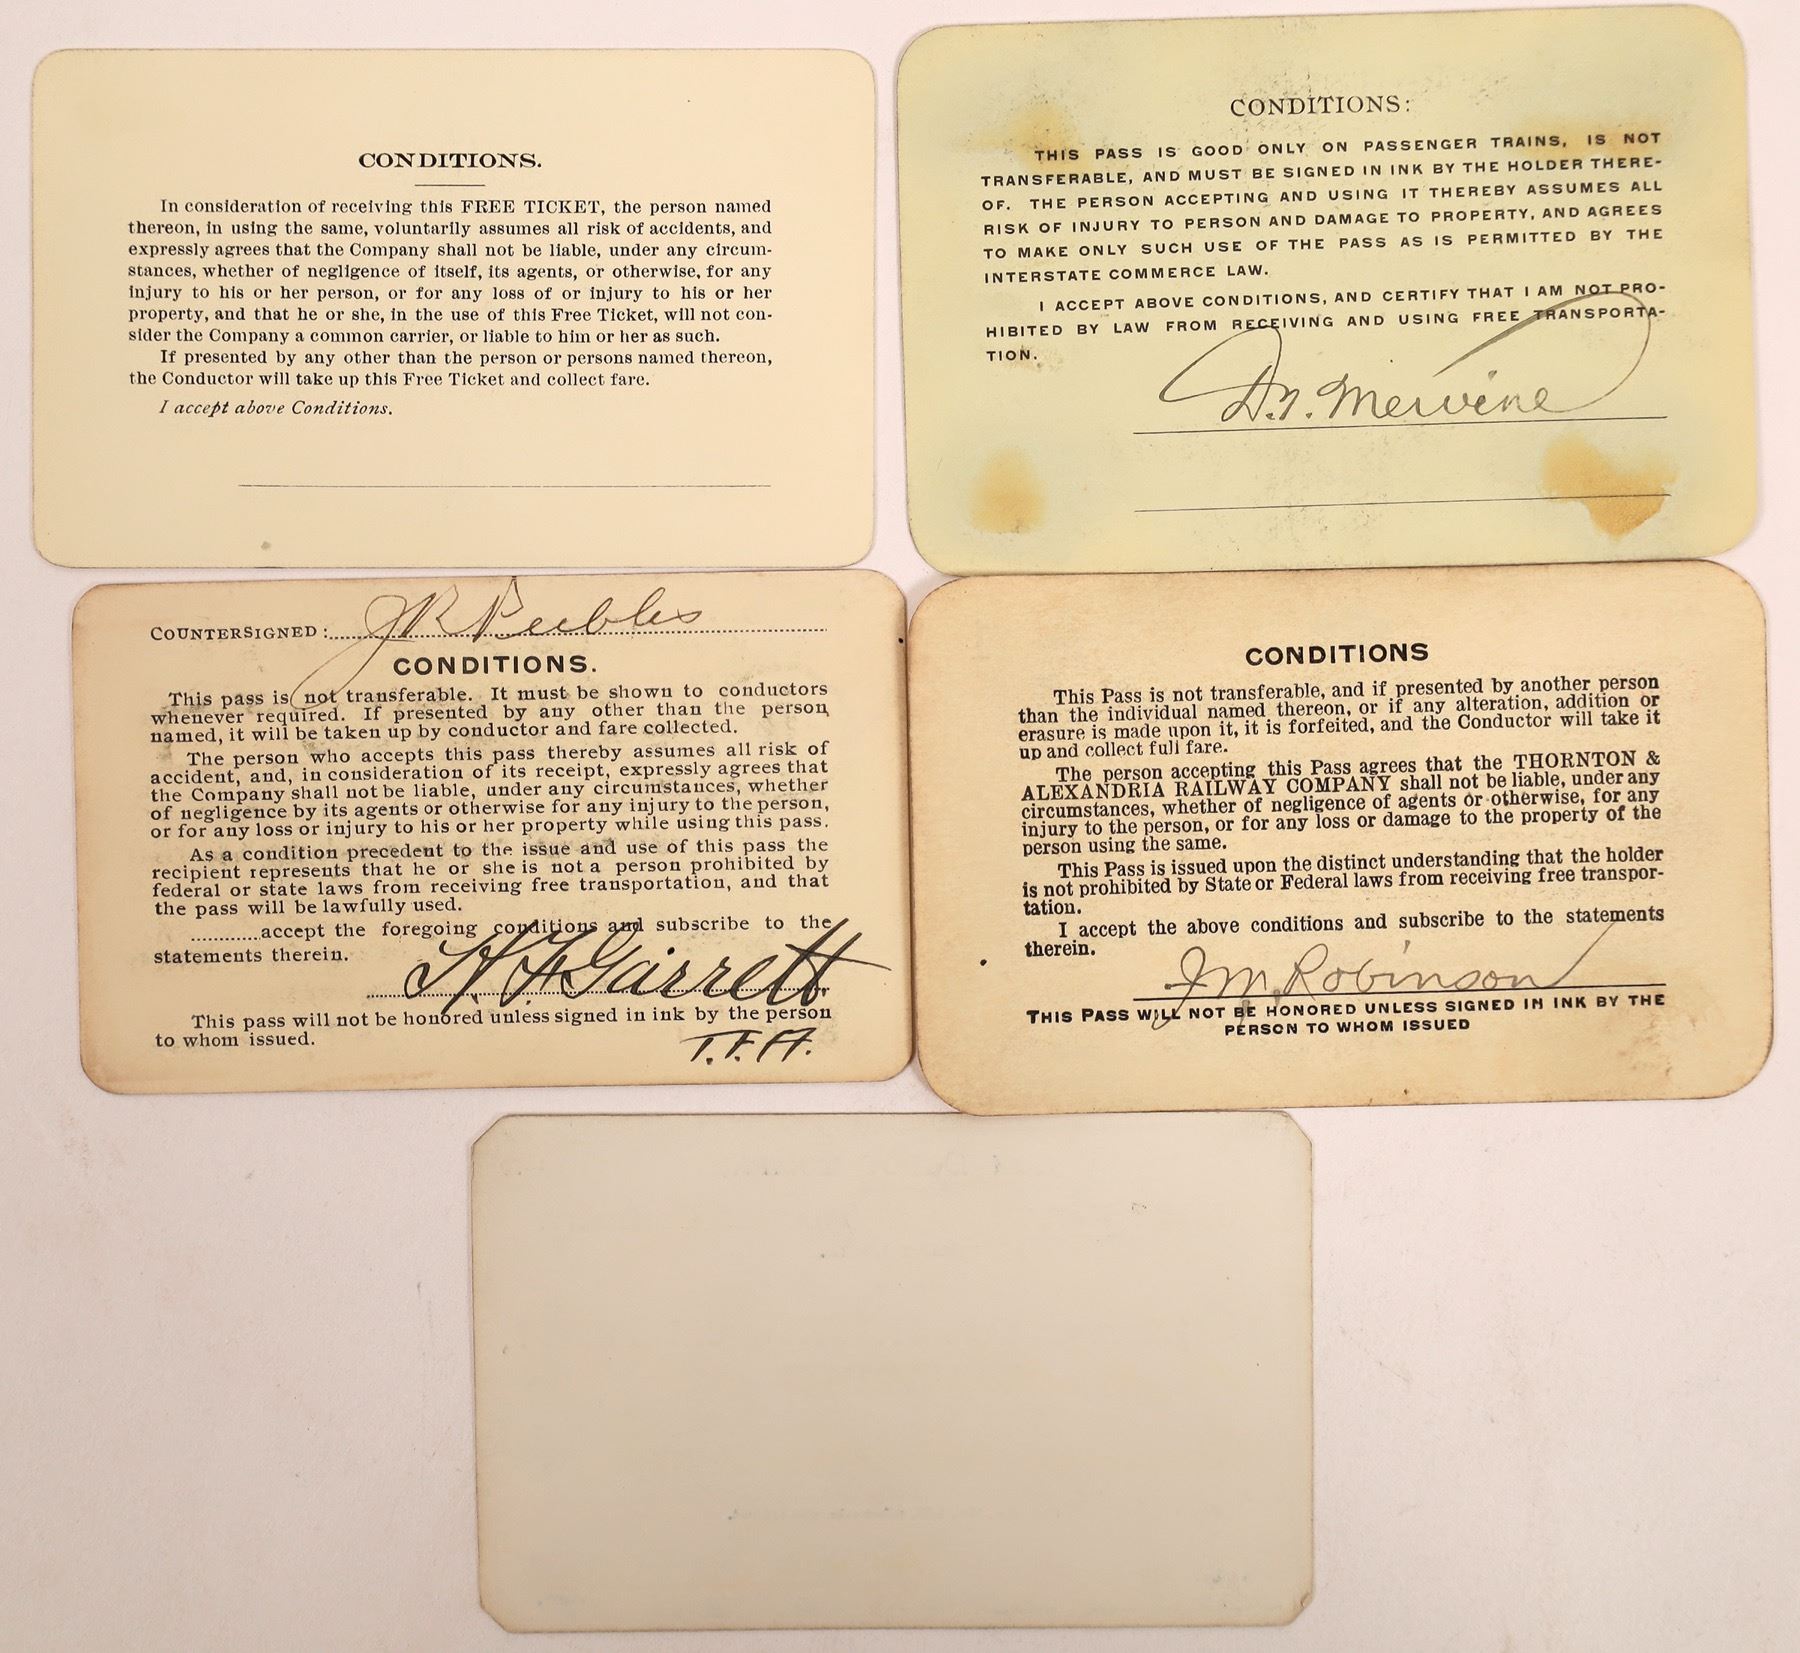 CONDITIONS.
In consideration of receiving this FREE TICKET, the person named
thereon, in using the same, voluntarily assumes all risk of accidents, and
expressly agrees that the Company shall not be liable, under any circum-
stances, whether of negligence of itself, its agents, or otherwise, for any
injury to his or her person, or for any loss of or injury to his or her
property, and that he or she, in the use of this Free Ticket, will not con-
sider the Company a common carrier, or liable to him or her as such.
If presented by any other than the person or persons named thereon,
the Conductor will take up this Free Ticket and collect fare.
I accept above Conditions.
CONDITIONS:
THIS PASS IS GOOD ONLY ON PASSENGER TRAINS, IS NOT
TRANSFERABLE, AND MUST BE SIGNED IN INK BY THE HOLDER THERE-
OF. THE PERSON ACCEPTING AND USING IT THEREBY ASSUMES ALL
RISK OF INJURY TO PERSON AND DAMAGE TO PROPERTY, AND AGREES
TO MAKE ONLY SUCH USE OF THE PASS AS IS PERMITTED BY THE
INTERSTATE COMMERCE LAW.
I ACCEPT ABOVE CONDITIONS, AND CERTIFY THAT I AM NOT PRO-
HIBITED BY LAW FROM RECEIVING AND USING FREE TRANSPORTA-
TION.
Mervine
COUNTERSIGNED: JR Peebles
CONDITIONS.
This pass is not transferable. It must be shown to conductors
whenever required. If presented by any other than the person
named, it will be taken up by conductor and fare collected.
The person who accepts this pass thereby assumes all risk of
accident, and, in consideration of its receipt, expressly agrees that
the Company shall not be liable, under any circumstances, whether
of negligence by its agents or otherwise for any injury to the person,
or for any loss or injury to his or her property while using this pass.
As a condition precedent to the issue and use of this pass the
recipient represents that he or she is not a person prohibited by
federal or state laws from receiving free transportation, and that
the pass will be lawfully used.
............accept the foregoing conditions and subscribe to the
statements therein.
H. F Garrett
This pass will not be honored unless signed in ink by the person
to whom issued.
T. F. A.
CONDITIONS
This Pass is not transferable, and if presented by another person
than the individual named thereon, or if any alteration, addition or
erasure is made upon it, it is forfeited, and the Conductor will take it
up and collect full fare.
The person accepting this Pass agrees that the THORNTON &
ALEXANDRIA RAILWAY COMPANY shall not be liable, under any
circumstances, whether of negligence of agents or otherwise, for any
injury to the person, or for any loss or damage to the property of the
person using the same.
This Pass is issued upon the distinct understanding that the holder
is not prohibited by State or Federal laws from receiving free transpor-
tation.
I accept the above conditions and subscribe to the statements
therein.
J M Robinson
THIS PASS WILL NOT BE HONORED UNLESS SIGNED IN INK BY THE
PERSON TO WHOM ISSUED